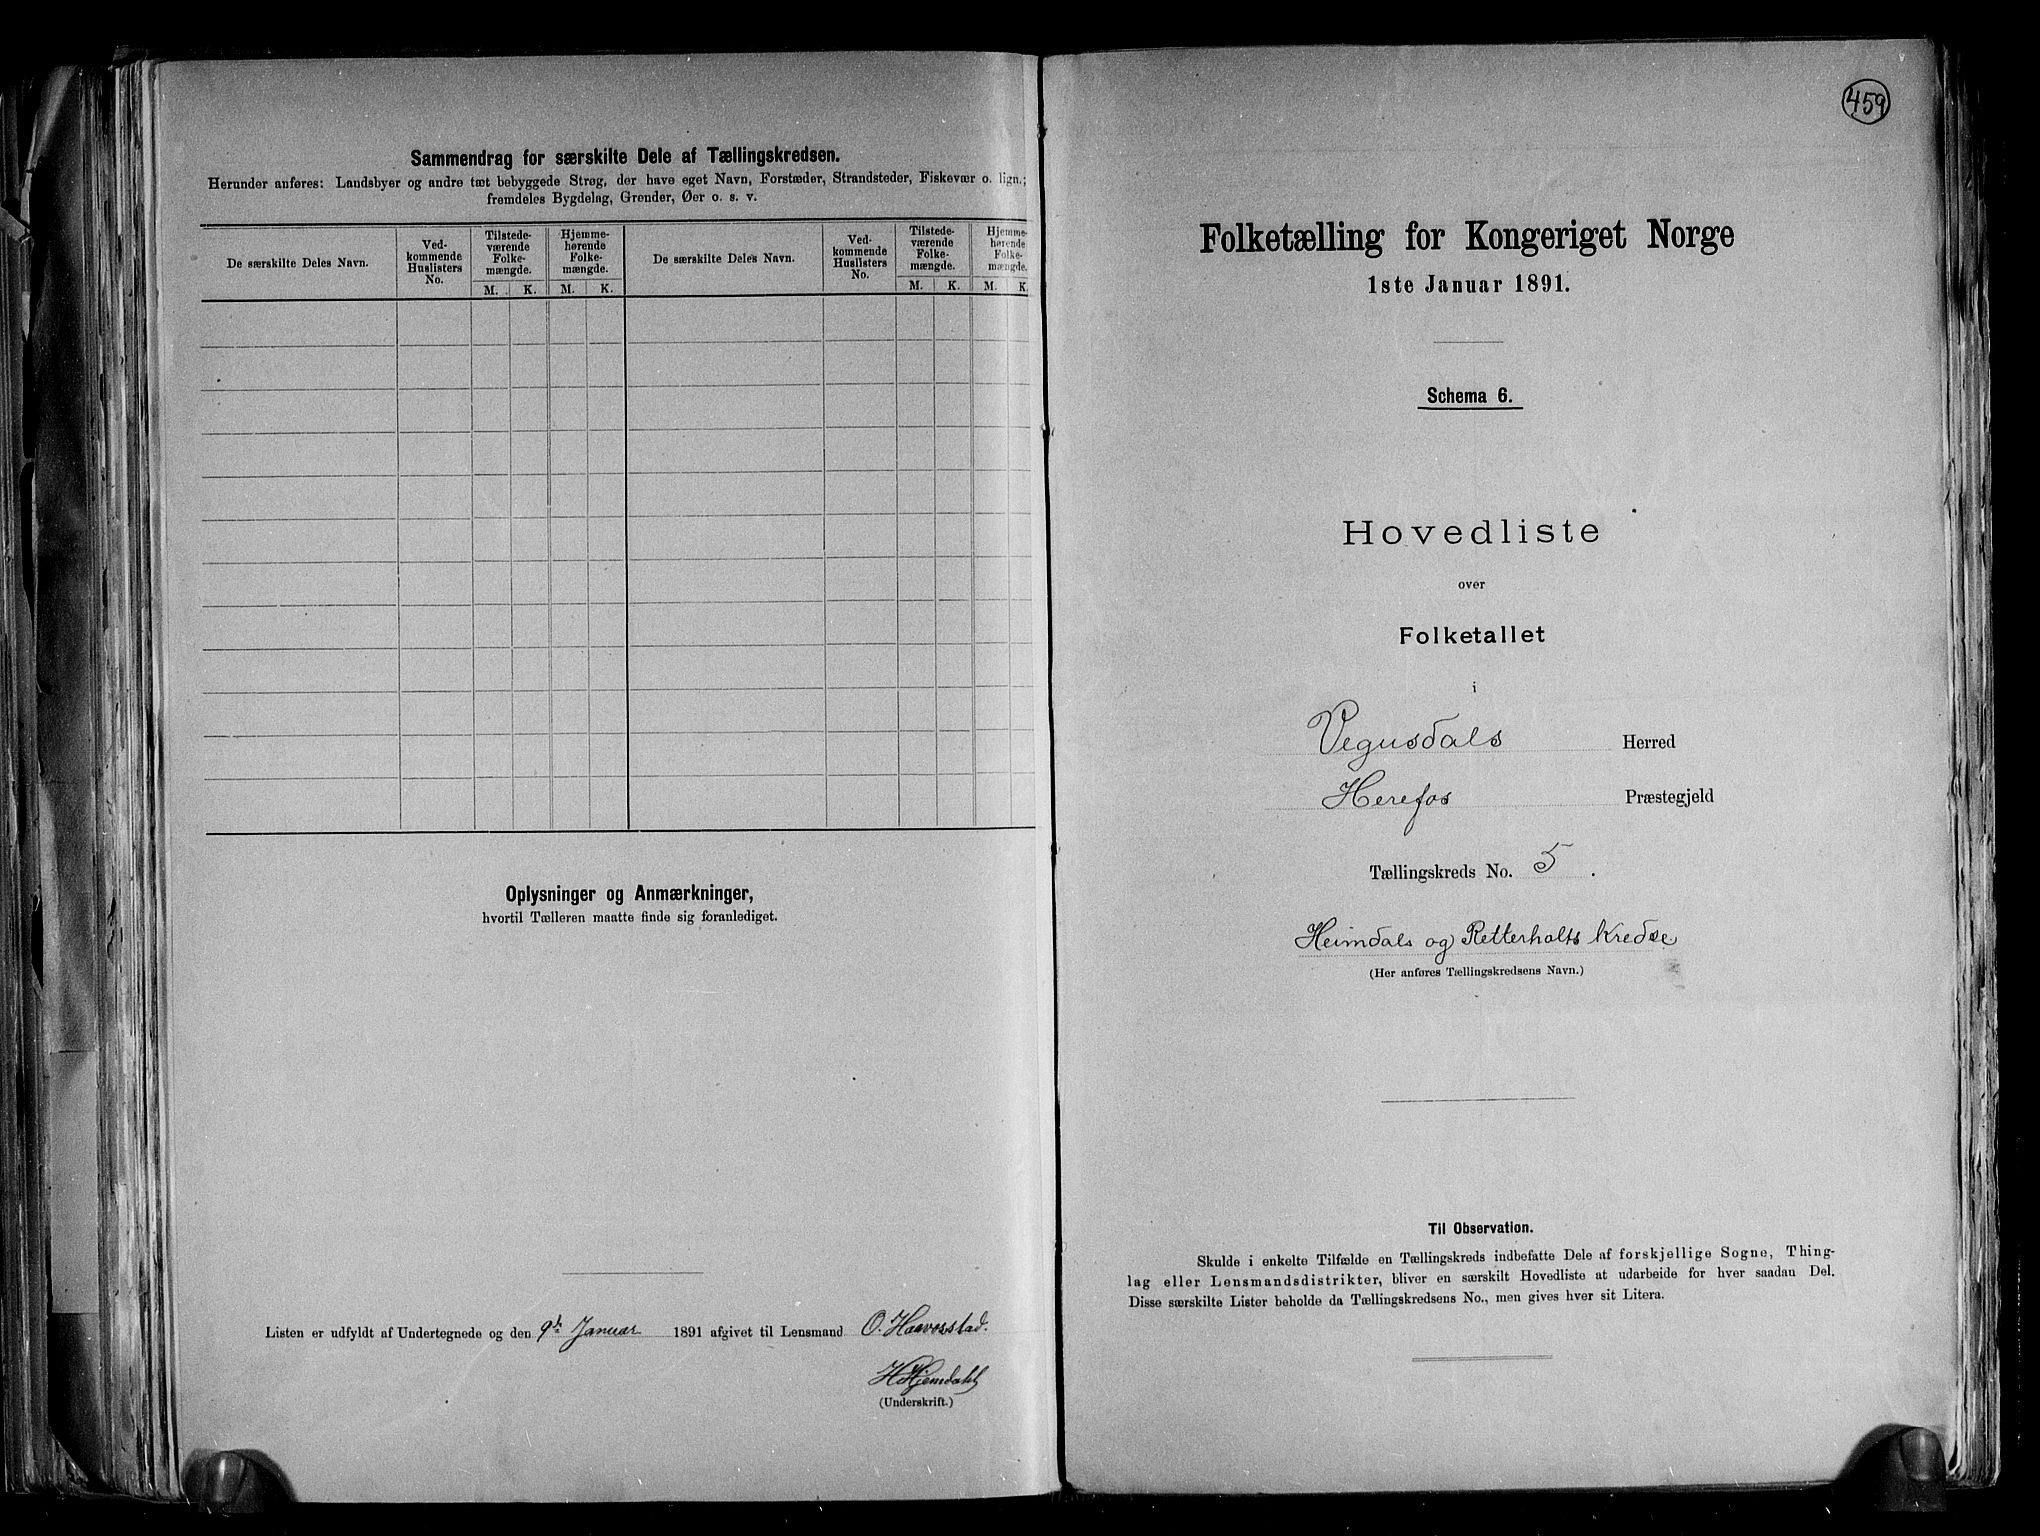 Sammendrag for særskilte Dele af Tællingskredsen.
Herunder anføres: Landsbyer og andre tæt bebyggede Strøg, der have eget Navn, Forstæder, Strandsteder, Fiskevær o. lign.;
fremdeles Bygdelag, Grender, Øer o. s. v.
De særskilte Deles Navn.
Ved-
kommende
Huslisters
No.
Tilstede-
værende
Folke-
mængde.
Hjemme-
hørende
Folke-
mængde.
De særskilte Deles Navn.
Ved-
kommende
Huslisters
No.
Tilstede-
værende
Folke-
mængde.
Hjemme-
hørende
Folke-
mængde.
M. K. M. K. M. K. M. K.
Oplysninger og Anmærkninger,
hvortil Tælleren maatte finde sig foranlediget.
Listen er udfyldt af Undertegnede og den 9de Januar 1891 afgivet til Lensmand O. Haavorstad.
H Hjemdahl
(Underskrift.)
459
Folketælling for Kongeriget Norge
1ste Januar 1891.
Schema 6.
Hovedliste
over
Folketallet
i
Vegusdals Herred
Herefos Præstegjeld
Tællingskreds No. 5.
Heimdals og Retterholts Kredse
(Her anføres Tællingskredsens Navn.)
Til Observation.
Skulde i enkelte Tilfælde en Tællingskreds indbefatte Dele af forskjellige Sogne, Thing-
lag eller Lensmandsdistrikter, bliver en særskilt Hovedliste at udarbeide for hver saadan Del.
Disse særskilte Lister beholde da Tællingskredsens No., men gives hver sit Litera.